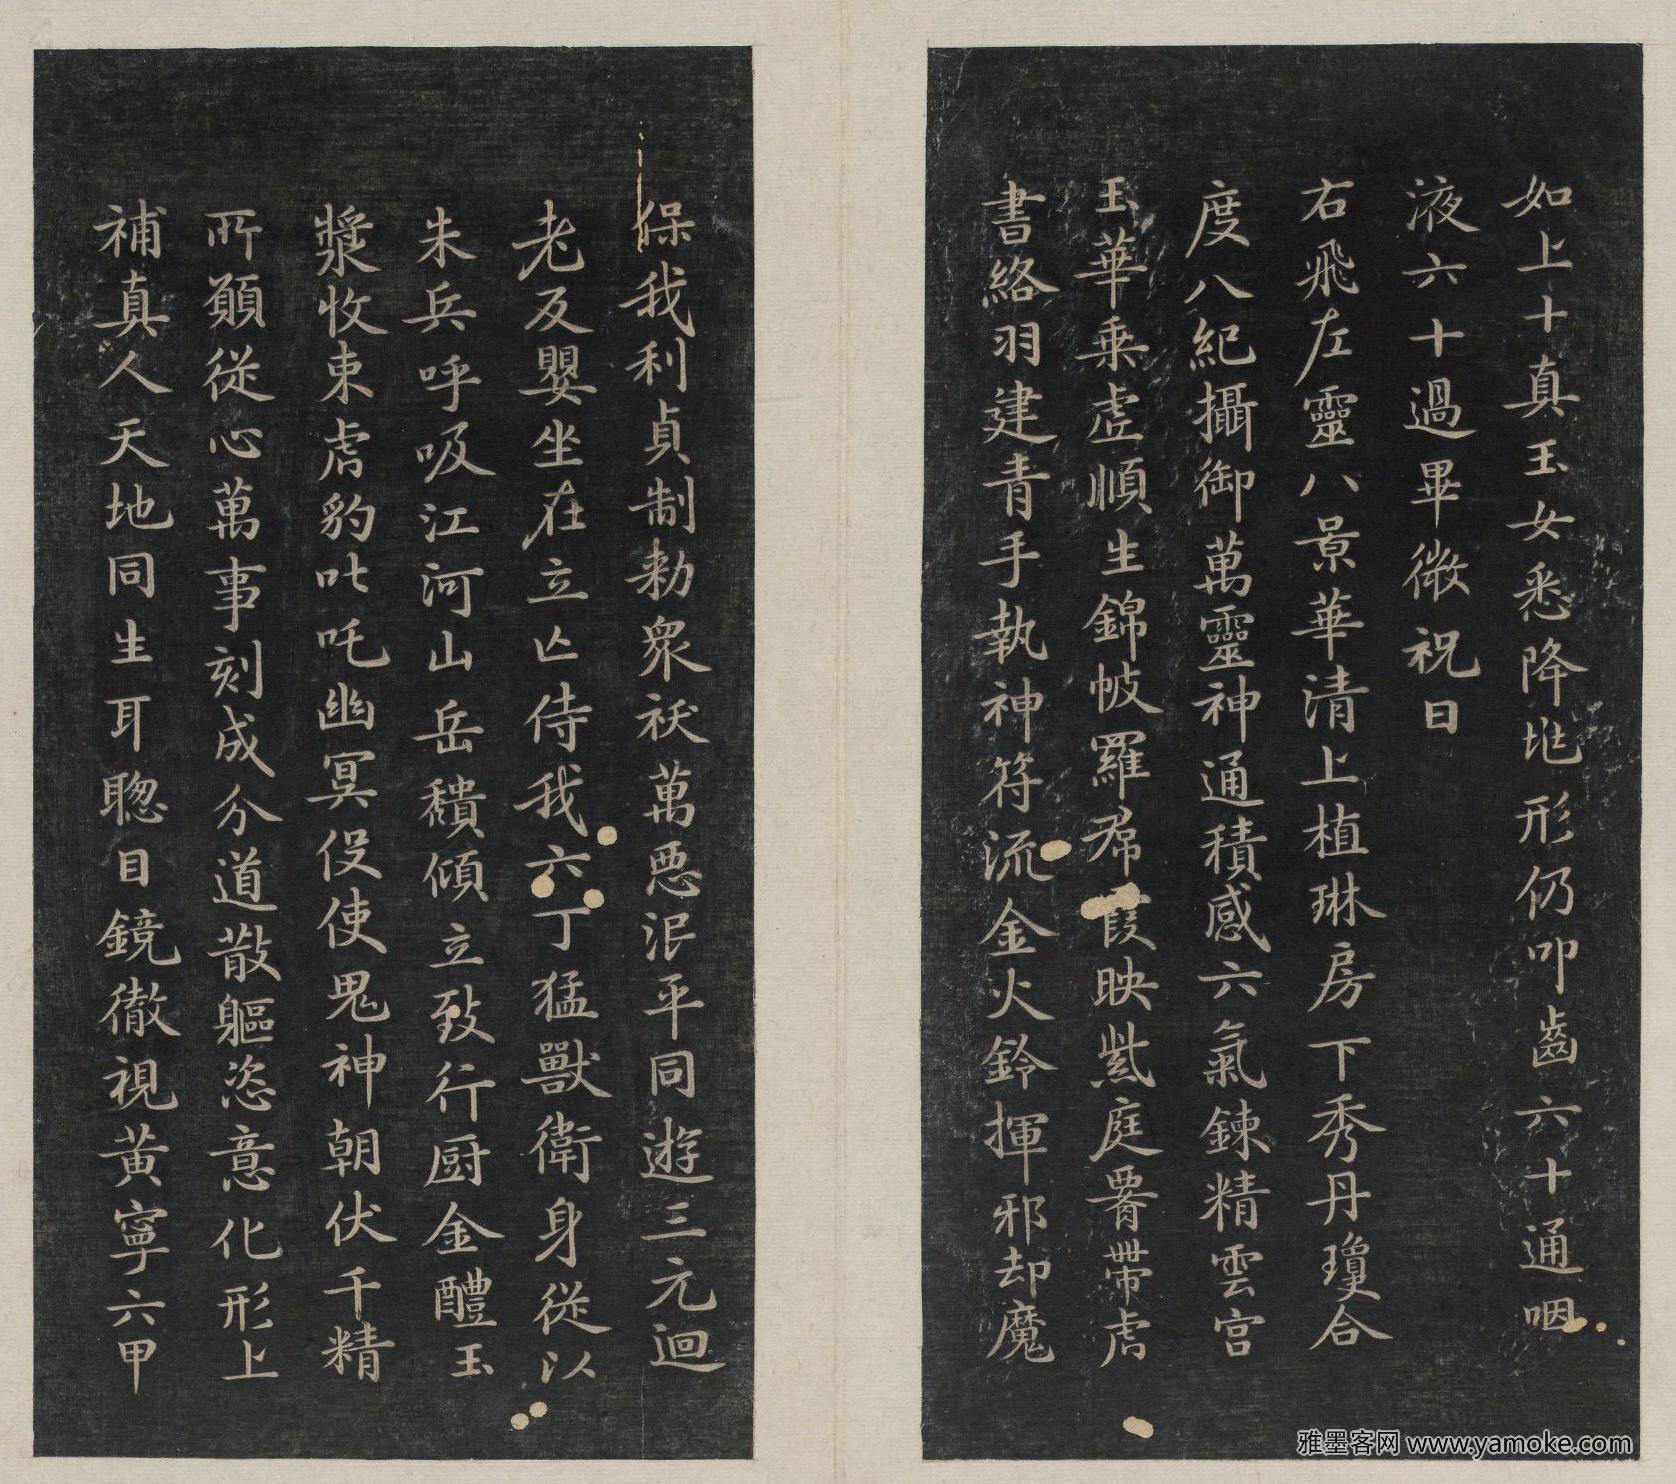 如上十真玉女悉降地形仍叩齒六十通咽
液六十過畢微祝曰
右飛左靈八景華清上植琳房下秀丹瓊合
度八紀攝御萬靈神通積感六氣鍊精雲宮
玉華乗虛順生錦帔羅帬霞映紫庭腰帶虎
書絡羽建青手執神符流金火鈴揮邪却魔
保我利貞制勑衆祅萬惡泯平同遊三元迴
老反嬰坐在立亡侍我六丁猛獸衛身從以
朱兵呼吸江河山岳穨傾立致行厨金醴玉
漿收束虎豹叱吒幽冥役使鬼神朝伏千精
所願從心萬事刻成分道散軀恣意化形上
補真人天地同生耳聦目鏡徹視黃寧六甲
雅墨客网 www.yamoke.com